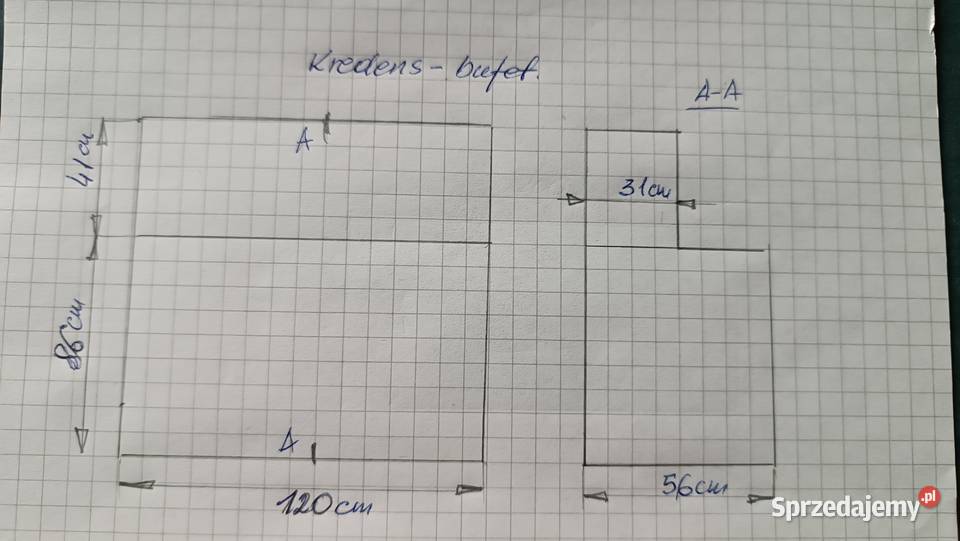 Kredens - bufet.
A-A
A
41cm
31cm
86cm
A
120cm
56cm
Sprzedajemy.pl